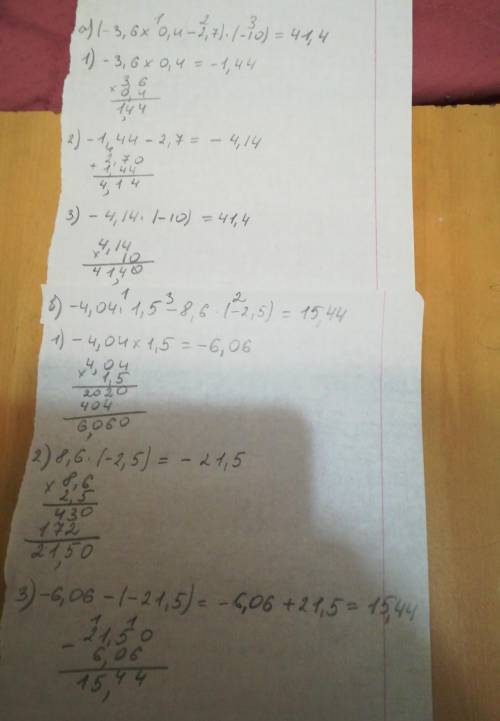 1 2 3
а) (-3,6 × 0,4 - 2,7) · (-10) = 41,4
1) -3,6 × 0,4 = -1,44
3 6
× 0,4
1,4 4
2) -1,44 - 2,7 = -4,14
2,70
+ 1,44
4,14
3) -4,14 · (-10) = 41,4
4,14
× 10
41,40
1 3 2
б) -4,04 · 1,5 - 8,6 · (-2,5) = 15,44
1) -4,04 × 1,5 = -6,06
4,04
× 1,5
2020
404
6,060
2) 8,6 · (-2,5) = -21,5
× 8,6
2,5
430
172
21,50
3) -6,06 - (-21,5) = -6,06 + 21,5 = 15,44
1 1
- 21,50
6,06
15,44